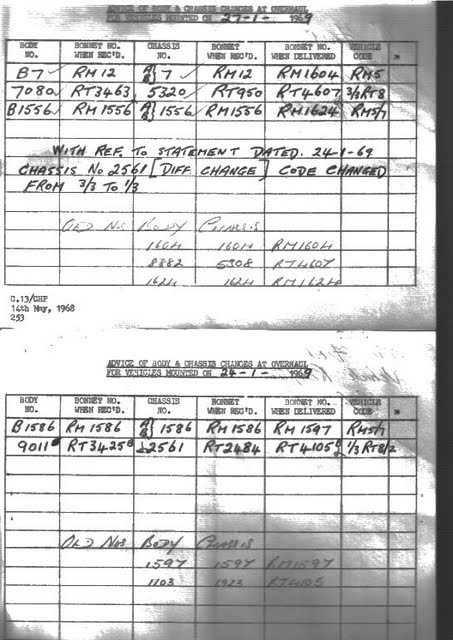 ADVICE OF BODY & CHASSIS CHANGES AT OVERHAUL
FOR VEHICLES MOUNTED ON 27-1- 1969
BODY NO. BONNET NO. WHEN REC'D. CHASSIS NO. BONNET WHEN REC'D. BONNET NO. WHEN DELIVERED VEHICLE CODE
B7 RM12 7 RM12 RM1604 RM5
7080 RT3463 5320 RT950 RT4607 3/3 RT8
B1556 RM1556 1556 RM1556 RM1624 RM5/7
WITH REF. TO STATEMENT DATED. 24-1-69
CHASSIS No 2561 [DIFF. CHANGE] CODE CHANGED
FROM 3/3 TO 1/3
OLD NOS BODY CHASSIS
1604 1604 RM1604
8882 5308 RT4607
1624 1624 RM1624
C.13/GHP
14th May, 1968
253
ADVICE OF BODY & CHASSIS CHANGES AT OVERHAUL
FOR VEHICLES MOUNTED ON 24-1- 1969
BODY NO. BONNET NO. WHEN REC'D. CHASSIS NO. BONNET WHEN REC'D. BONNET NO. WHEN DELIVERED VEHICLE CODE
B1586 RM1586 1586 RM1586 RM1597 RM5/7
9011 RT3425 2561 RT2484 RT4105 1/3 RT8/2
OLD NOS BODY CHASSIS
1597 1597 RM1597
1103 1923 RT4105